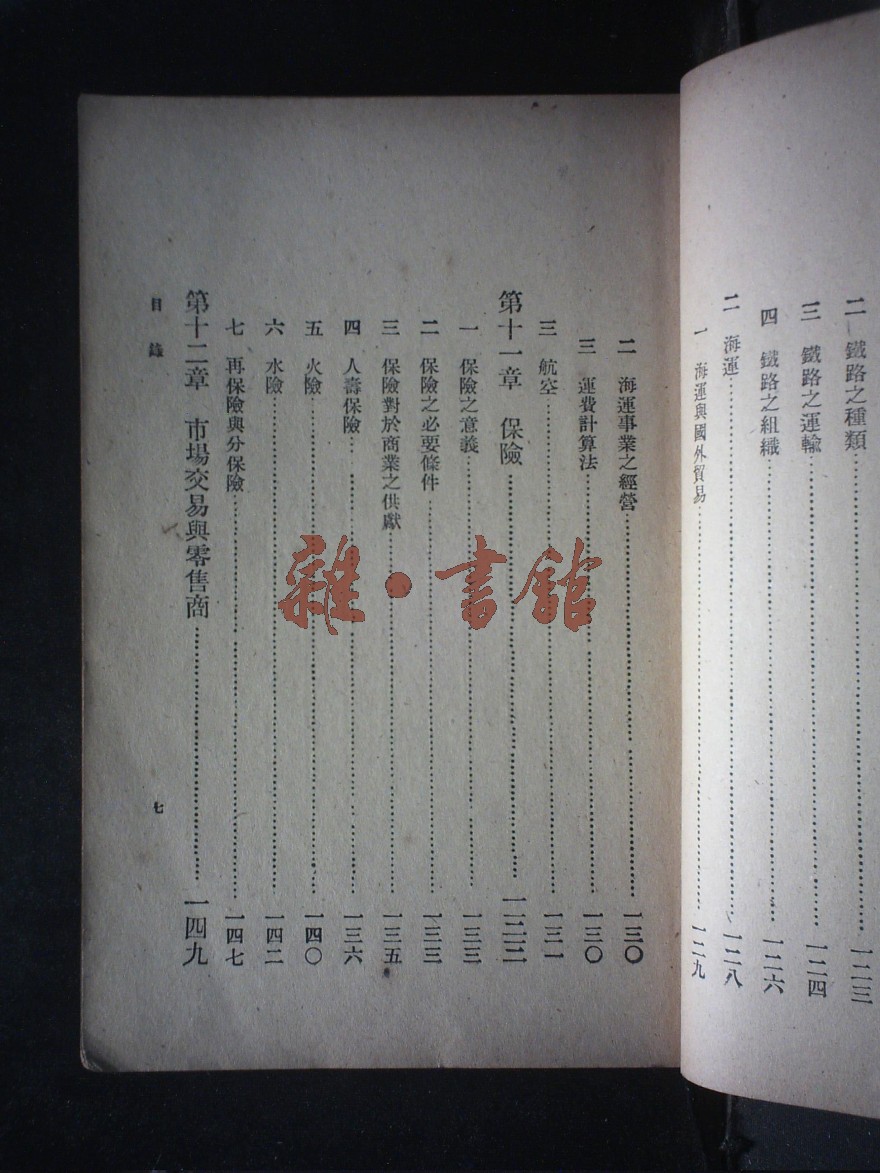 二 鐵路之種類……一二三
三 鐵路之運輸……一二四
四 鐵路之組織……一二六
二 海運……一二八
一 海運與國外貿易……一二九
二 海運事業之經營……一三〇
三 運費計算法……一三〇
三 航空……一三一
第十一章 保險……一三三
一 保險之意義……一三三
二 保險之必要條件……一三三
三 保險對於商業之供獻……一三五
四 人壽保險……一三六
五 火險……一四〇
六 水險……一四二
七 再保險與分保險……一四七
第十二章 市場交易與零售商……一四九
目錄
七
雜·書館